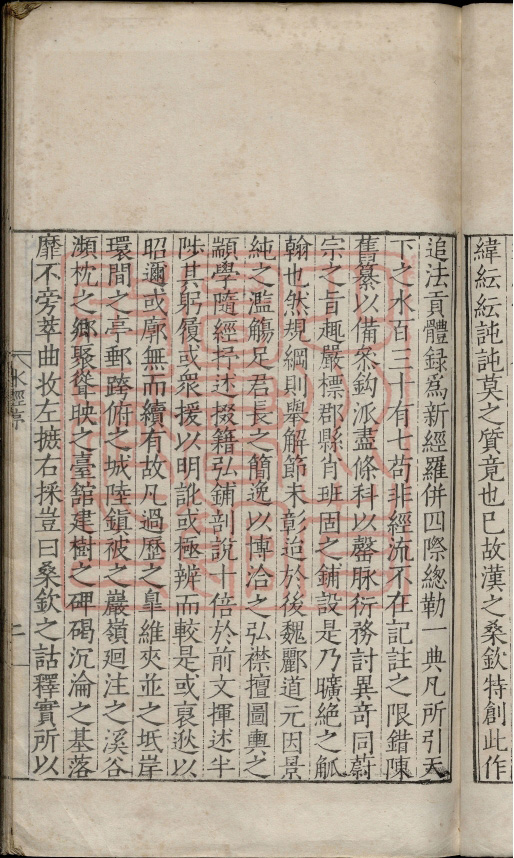 緯紜紜訰訰莫之質竟也已故漢之桑欽特創此作
追法貢體録爲新經羅併四際總勒一典凡所引天
下之水百三十有七苟非經流不在記註之限錯陳
舊纂以備叅鈎泒盡條科以罄脉衍務討異竒同蔚
宗之旨趣嚴標郡縣肖班固之鋪設是乃曠絶之觚
翰也然規綱則舉解節未彰迨於後魏酈道元因景
純之濫觴足君長之簡逸以博洽之弘襟擅圖輿之
顓學隨經抒述掇籍弘鋪剖說十倍於前文揮述半
陟其躬履或衆援以明訛或極辨而較是或裒逖以
昭邇或廓無而續有故凡過歷之臯維夾並之坻岸
環間之亭郵跨俯之城陸鎮被之巖嶺廻注之溪谷
瀕枕之鄉聚聳映之臺錧建樹之碑碣沉淪之基落
靡不旁萃曲收左摭右採豈曰桑欽之詁釋實所以
水經序
二